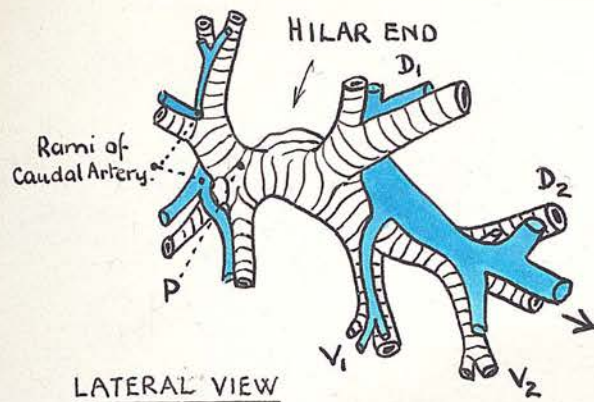 HILAR END
D1
Rami of
Caudal Artery.
D2
P
V1
V2
LATERAL VIEW